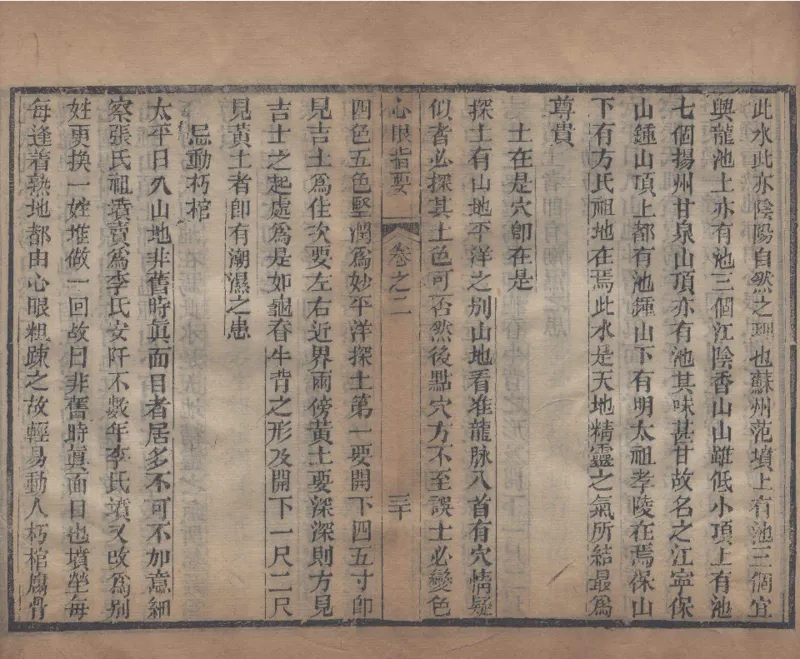 此水此亦陰陽自然之理也蘇州范墳上有池三個宜
興龍池上亦有池三個江陰香山山雖低小頂上有池
七個揚州甘泉山頂亦有池其味甚甘故名之江寧保
山鍾山頂上都有池鍾山下有明太祖孝陵在焉保山
下有方氏祖地在焉此水是天地精靈之氣所結最為
尊貴
土在是穴卽在是
探土有山地平洋之別山地看准龍脉入首有穴情疑
似者必探其土色可否然後點穴方不至誤土必變色
心眼指要
卷之二
三十
四色五色堅潤爲妙平洋探土第一要開下四五寸卽
見吉土爲佳次要左右近界兩傍黃土要深深則方見
吉士之起處爲是如龜脊牛背之形及開下一尺二尺
見黃土者卽有潮濕之患
忌動朽棺
太平日久山地非舊時眞面目者居多不可不加意細
察張氏祖墳賣爲李氏安阡不數年李氏墳又改爲別
姓更換一姓堆做一回故曰非舊時眞面目也墳塋每
每逢着熟地都由心眼粗踈之故輕易動人朽棺腐骨